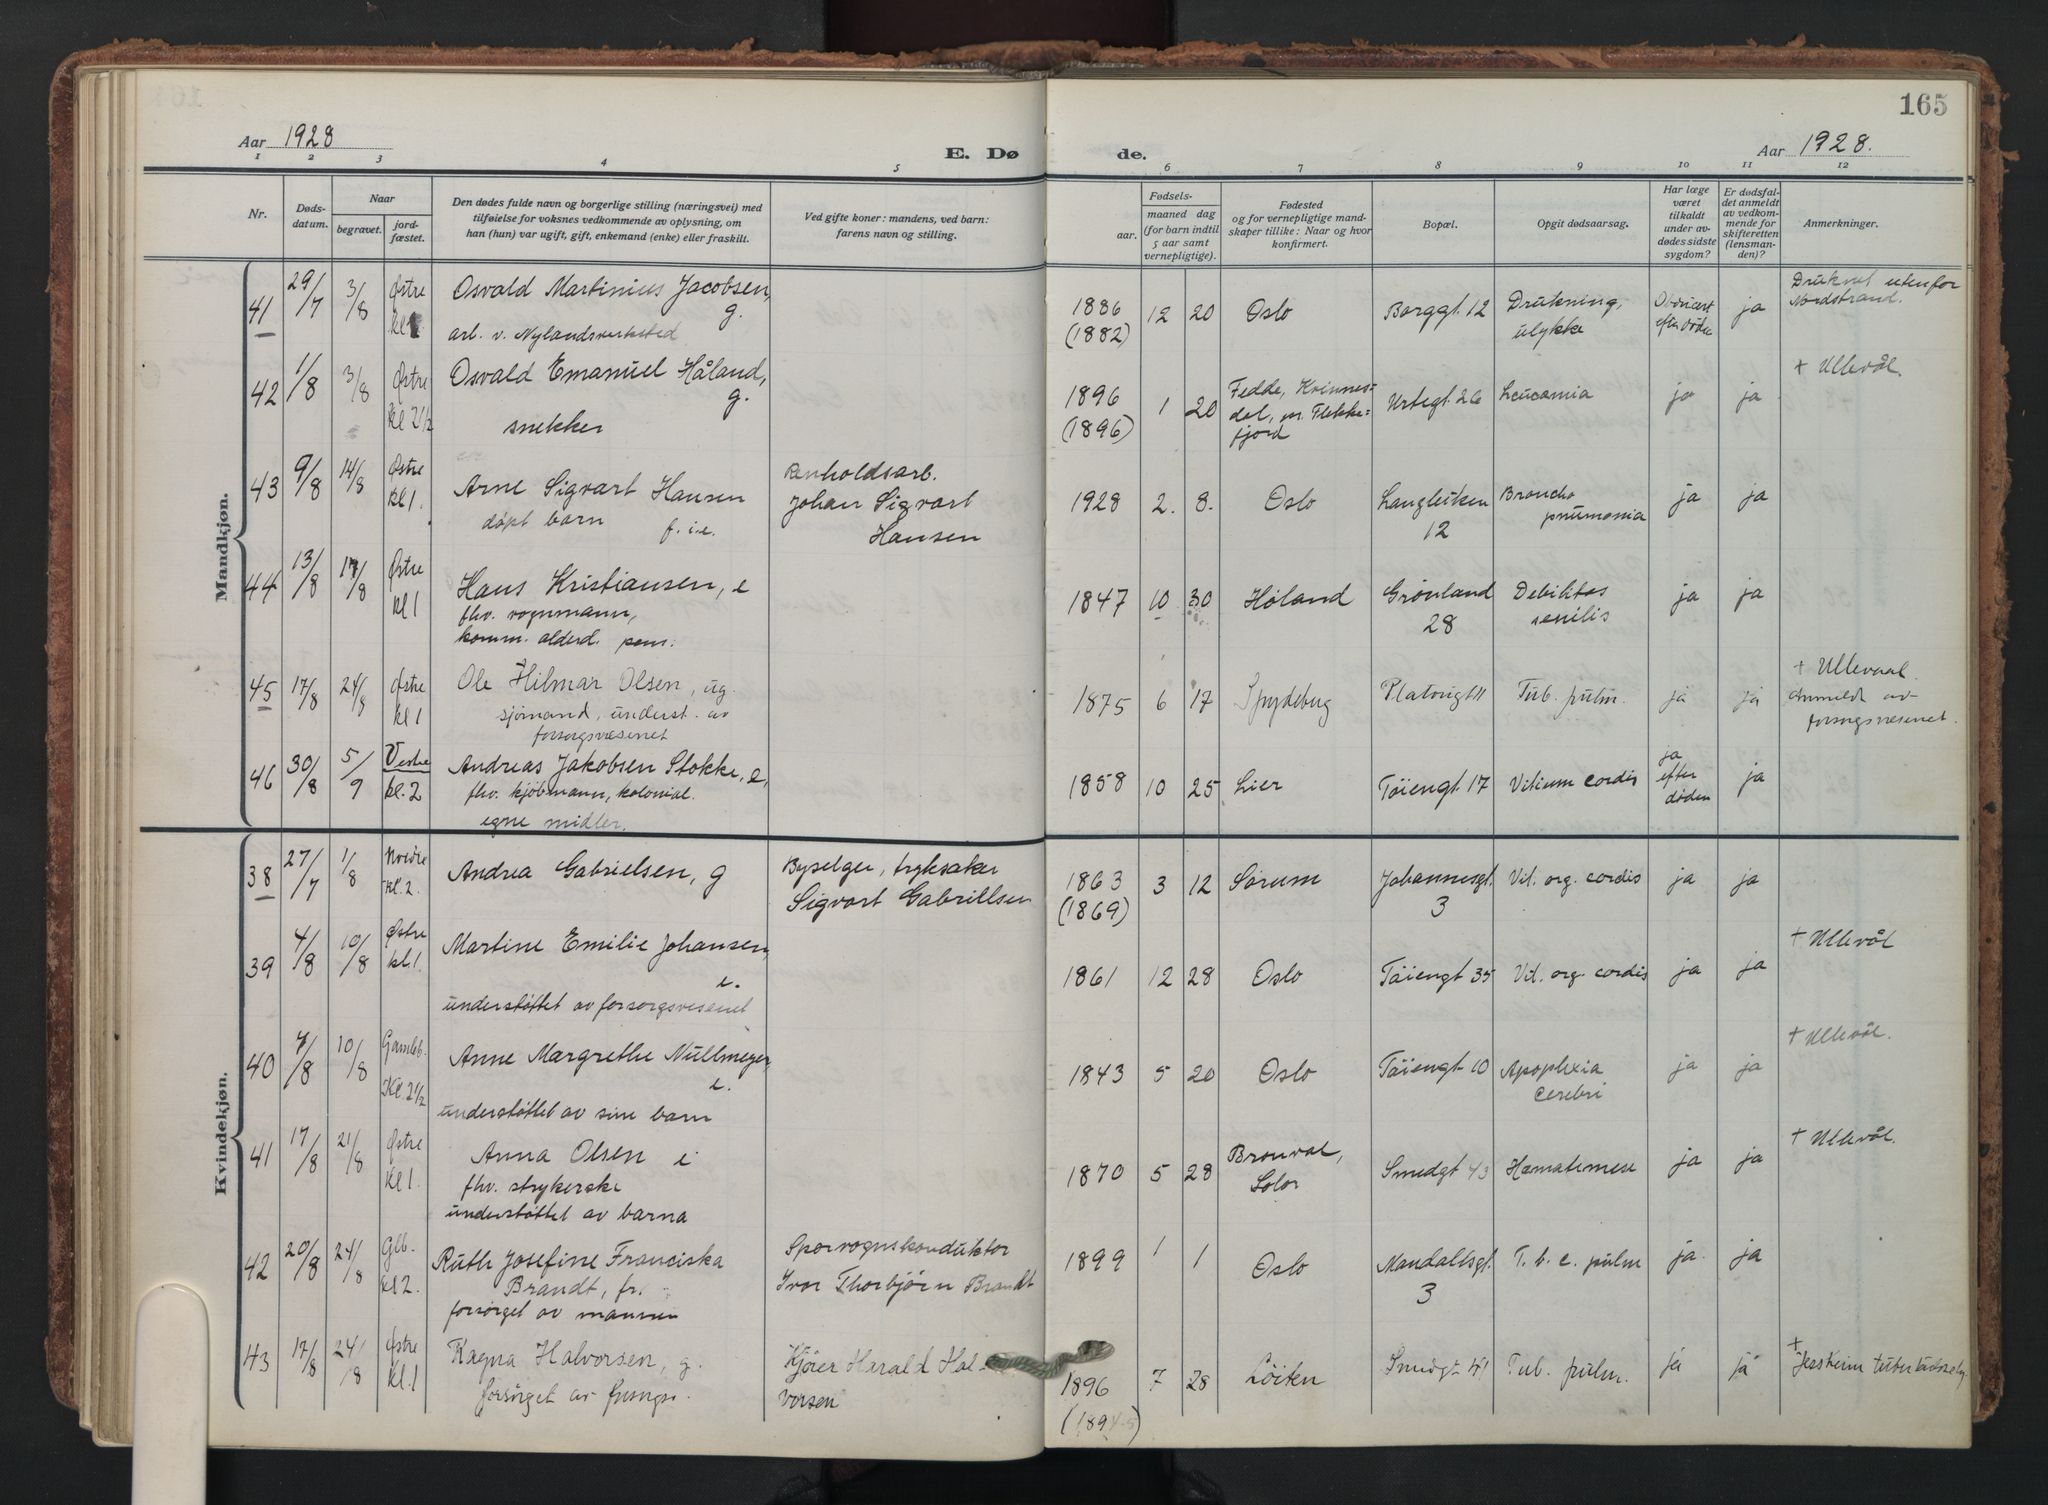 165
Aar 1928
E. Dø
de.
Aar 1928.
1 2 3 4 5 6 7 8 9 10 11 12
Nr.
Døds-
datum.
Naar
begravet.
jord-
fæstet.
Den dødes fulde navn og borgerlige stilling (næringsvei) med
tilføielse for voksnes vedkommende av oplysning, om
han (hun) var ugift, gift, enkemand (enke) eller fraskilt.
Ved gifte koner: mandens, ved barn:
farens navn og stilling.
Fødsels-
aar.
maaned dag
(for barn indtil
5 aar samt
vernepligtige).
Fødested
og for vernepligtige mand-
skaper tillike: Naar og hvor
konfirmert.
Bopæl.
Opgit dødsaarsag.
Har læge
været
tilkaldt
under av-
dødes sidste
sygdom?
Er dødsfal-
det anmeldt
av vedkom-
mende for
skifteretten
(lensman-
den)?
Anmerkninger.
Mandkjøn.
41 29/7 3/8 Østre kl 1
Osvald Martinius Jacobsen,
g.
arb. v. Nylandsverksted
1886 12 20 Oslo Borggt. 12 Drukning,
(1882) ulykke
efter døden
ja
Druknet utenfor
Nordstrand.
42 1/8 3/8 Østre kl 2 1/2
Osvald Emanuel Håland,
g.
snekker
1896 1 20 Fedde, Kvinnes-
(1896) dal, pr. Flekke-
fjord
Urtegt. 26 Leucæmia ja ja
+ Ullevål.
43 9/8 14/8 Østre kl 1.
Arne Sigvart Hansen
døpt barn f. i. e.
Renholdsarb.
Johan Sigvart
Hansen
1928 2. 8. Oslo Langleiken
12
Broncho
pnumonia
ja ja
44 13/8 17/8 Østre kl 1
Hans Kristiansen, e
fhv. vognmann,
komm. alderd. pens.
1847 10 30 Høland Grønland
28
Debilitas
senilis
ja ja
45 17/8 24/8 Østre kl 1
Ole Hilmar Olsen, ug.
sjømand, underst. av
forsorgsvæsenet
1875 6 17 Spydeberg Platougt 11 Tub. pulm. ja ja
+ Ullevaal
Anmeldt av
forsorgsvæsenet.
46 30/8 5/9 Vestre kl. 2
Andreas Jakobsen Stokke, e,
fhv. kjøbmann, kolonial.
egne midler.
1858 10 25 Lier Tøiengt. 17 Vitium cordis
ja
efter
døden
ja
Kvindekjøn.
38 27/7 1/8 Nordre kl. 2.
Andrea Gabrielsen, g
Byselger, tryksaker
Sigvart Gabrillsen
1863 3 12 Sørum Johannesgt.
(1869) 3
Vit. org. cordis ja ja
39 4/8 10/8 Østre kl. 1.
Martine Emilie Johansen,
e.
understøttet av forsorgsvesenet
1861 12 28 Oslo Tøiengt 35 Vit. org. cordis ja ja
+ Ullevål
40 4/8 10/8 Gamleb. Kl. 2 1/2
Anne Margrethe Nullmeyer,
e.
understøttet av sine barn
1843 5 20 Oslo Tøiengt 10 Apoplexia
cerebri
ja ja
+ Ullevål.
41 17/8 21/8 Østre kl 1.
Anna Olsen e
fhv. strykerske
understøttet av barna
1870 5 28 Bronval,
Solør
Smedgt 43 Hæmatemese ja ja
+ Ullevål.
42 20/8 24/8 Glb. kl 2.
Ruth Josefine Franciska
Brandt, fr.
forsørget av mannen
Sporvognskonduktør
Ivar Thorbjørn Brandt
1899 1 1 Oslo Mandallsgt.
3
T. b. c. pulm ja. ja
43 17/8 24/8 Østre kl. 1
Ragna Halvorsen, g.
forsørget av
Kjører Harald Hal-
vorsen
1896 7 28 Løiten Smedgt 41 Tub. pulm. ja ja
+
Jessheim